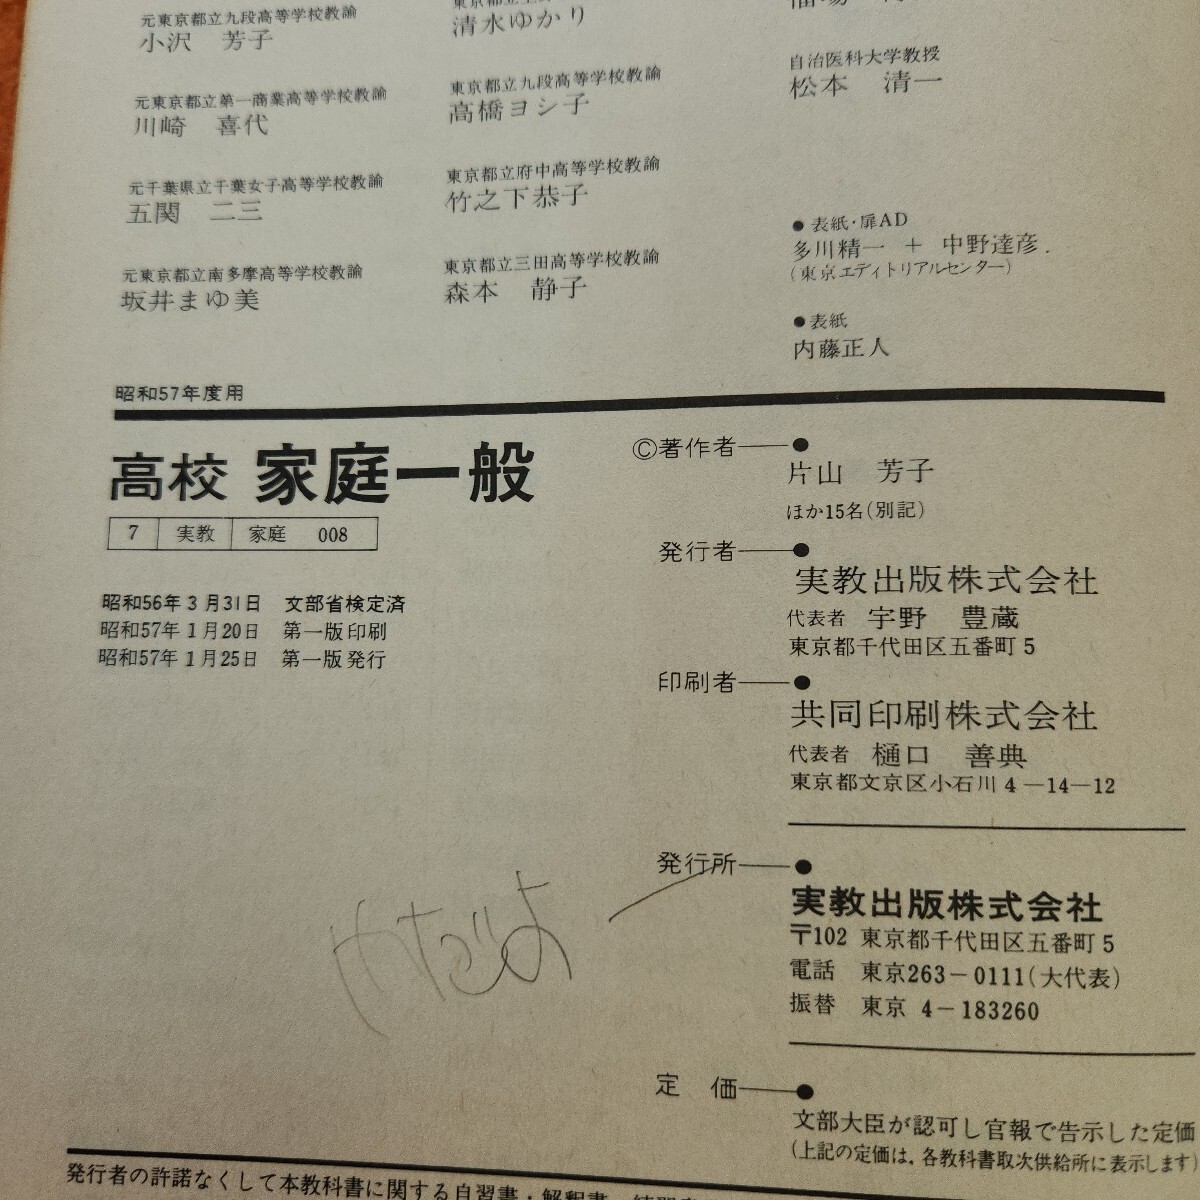 元東京都立九段高等学校教諭
小沢 芳子
元東京都立第一商業高等学校教諭
川崎 喜代
元千葉県立千葉女子高等学校教諭
五関 二三
元東京都立南多摩高等学校教諭
坂井まゆ美
清水ゆかり
東京都立九段高等学校教諭
高橋ヨシ子
東京都立府中高等学校教諭
竹之下恭子
東京都立三田高等学校教諭
森本 静子
自治医科大学教授
松本 清一
●表紙・扉AD
多川精一 + 中野達彦.
(東京エディトリアルセンター)
●表紙
内藤正人
昭和57年度用
高校 家庭一般
7 実教 家庭 008
昭和56年3月31日 文部省検定済
昭和57年1月20日 第一版印刷
昭和57年1月25日 第一版発行
Ⓒ著作者―●
片山 芳子
ほか15名(別記)
発行者―●
実教出版株式会社
代表者 宇野 豊蔵
東京都千代田区五番町5
印刷者―●
共同印刷株式会社
代表者 樋口 善典
東京都文京区小石川4―14―12
発行所―●
実教出版株式会社
〒102 東京都千代田区五番町5
電話 東京263-0111(大代表)
振替 東京 4-183260
やだよー
定 価―●
文部大臣が認可し官報で告示した定価
(上記の定価は,各教科書取次供給所に表示します)
発行者の許諾なくして本教科書に関する自習書・解釈書